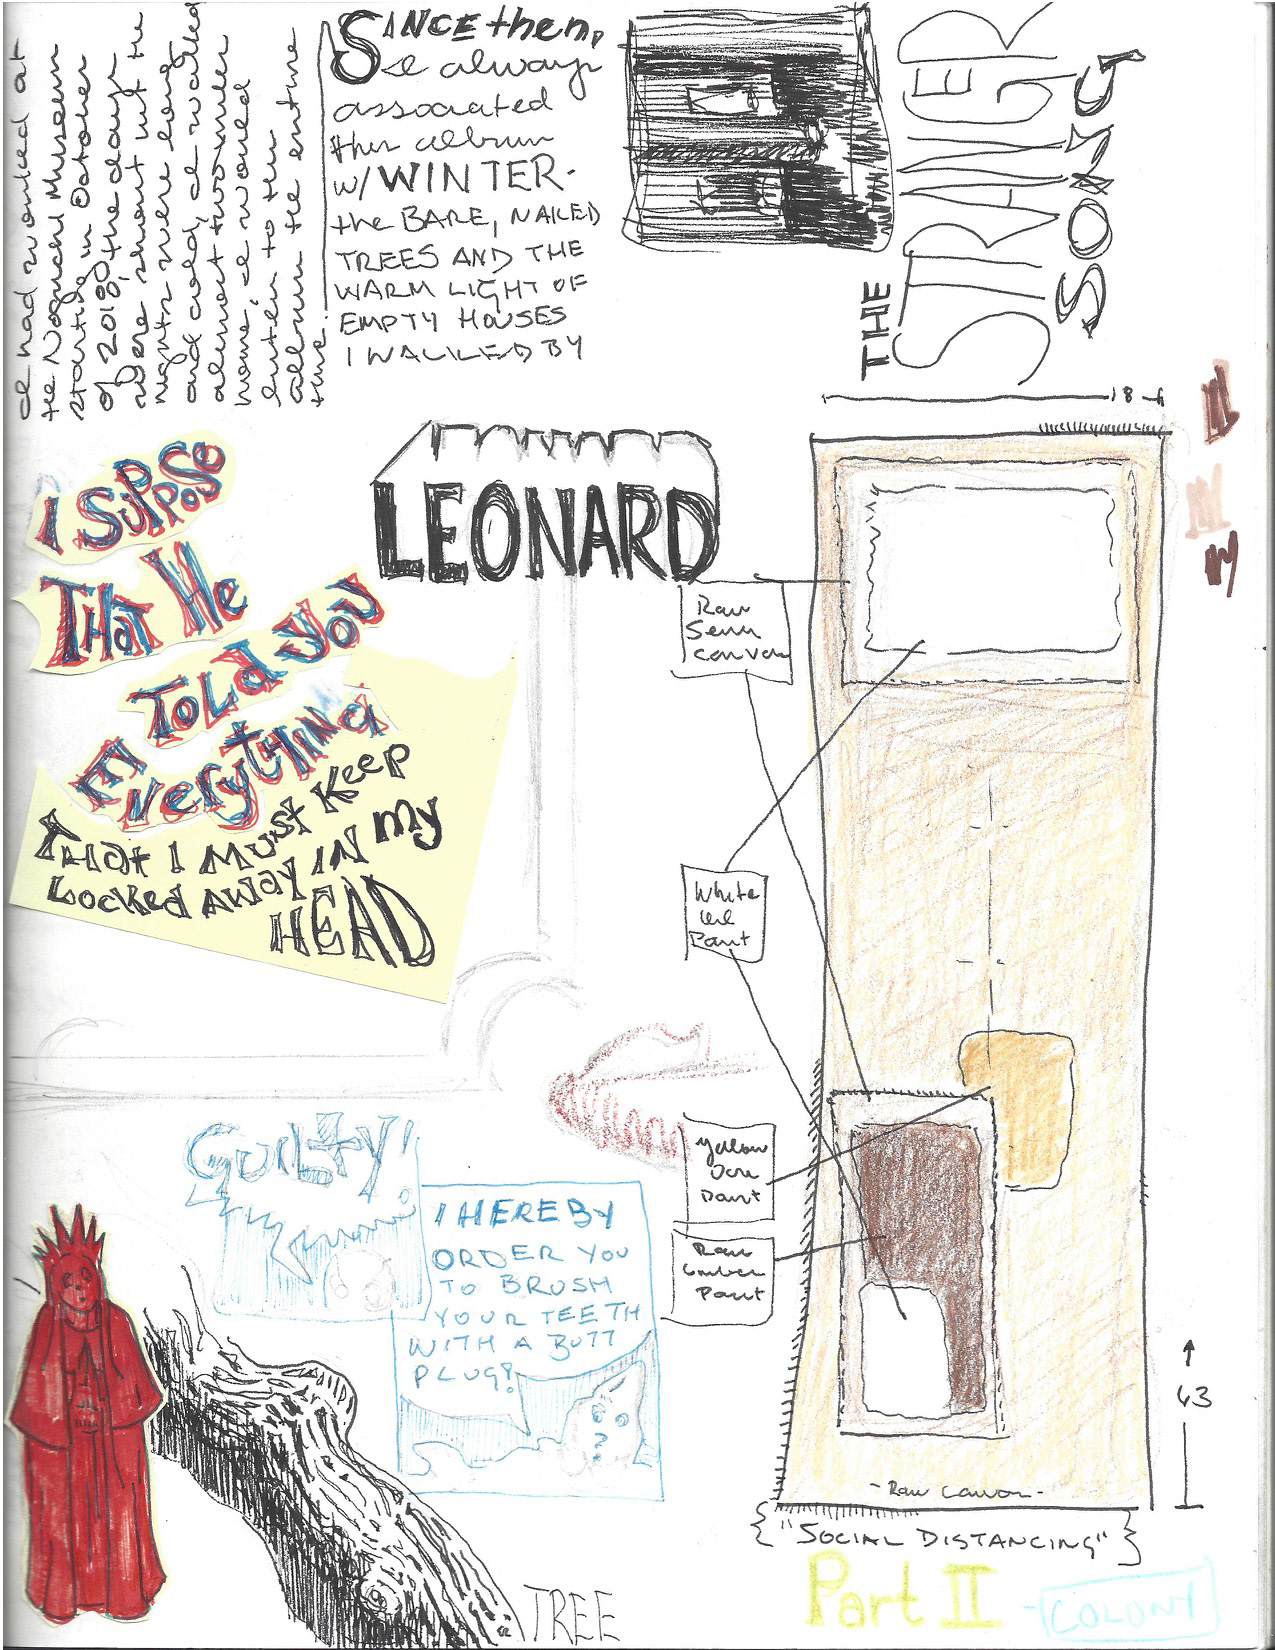 I had worked at
the Noguchi Museum
starting in October
of 2018, the days
were short but the
nights were long
and cold, I walked
almost two miles
home, I would
listen to this
album the entire
time.
SINCE then,
I always
associated
this album
w/ WINTER-
the BARE, NAKED
TREES AND THE
WARM LIGHT OF
EMPTY HOUSES
I WALKED BY
THE
STRANGER
SONG
18
LEONARD
I SUPPOSE
THAT HE
TOLD YOU
EVERYTHING
THAT I MUST KEEP
LOCKED AWAY IN MY
HEAD
Raw
Semi
canvas
White
oil
Paint
Yellow
Ocre
Paint
Raw
Umber
Paint
- Raw Canvas -
63
{"SOCIAL DISTANCING"}
Part II
- COLONY
GUILTY!
I HEREBY
ORDER YOU
TO BRUSH
YOUR TEETH
WITH A BUTT
PLUG!
?
TREE